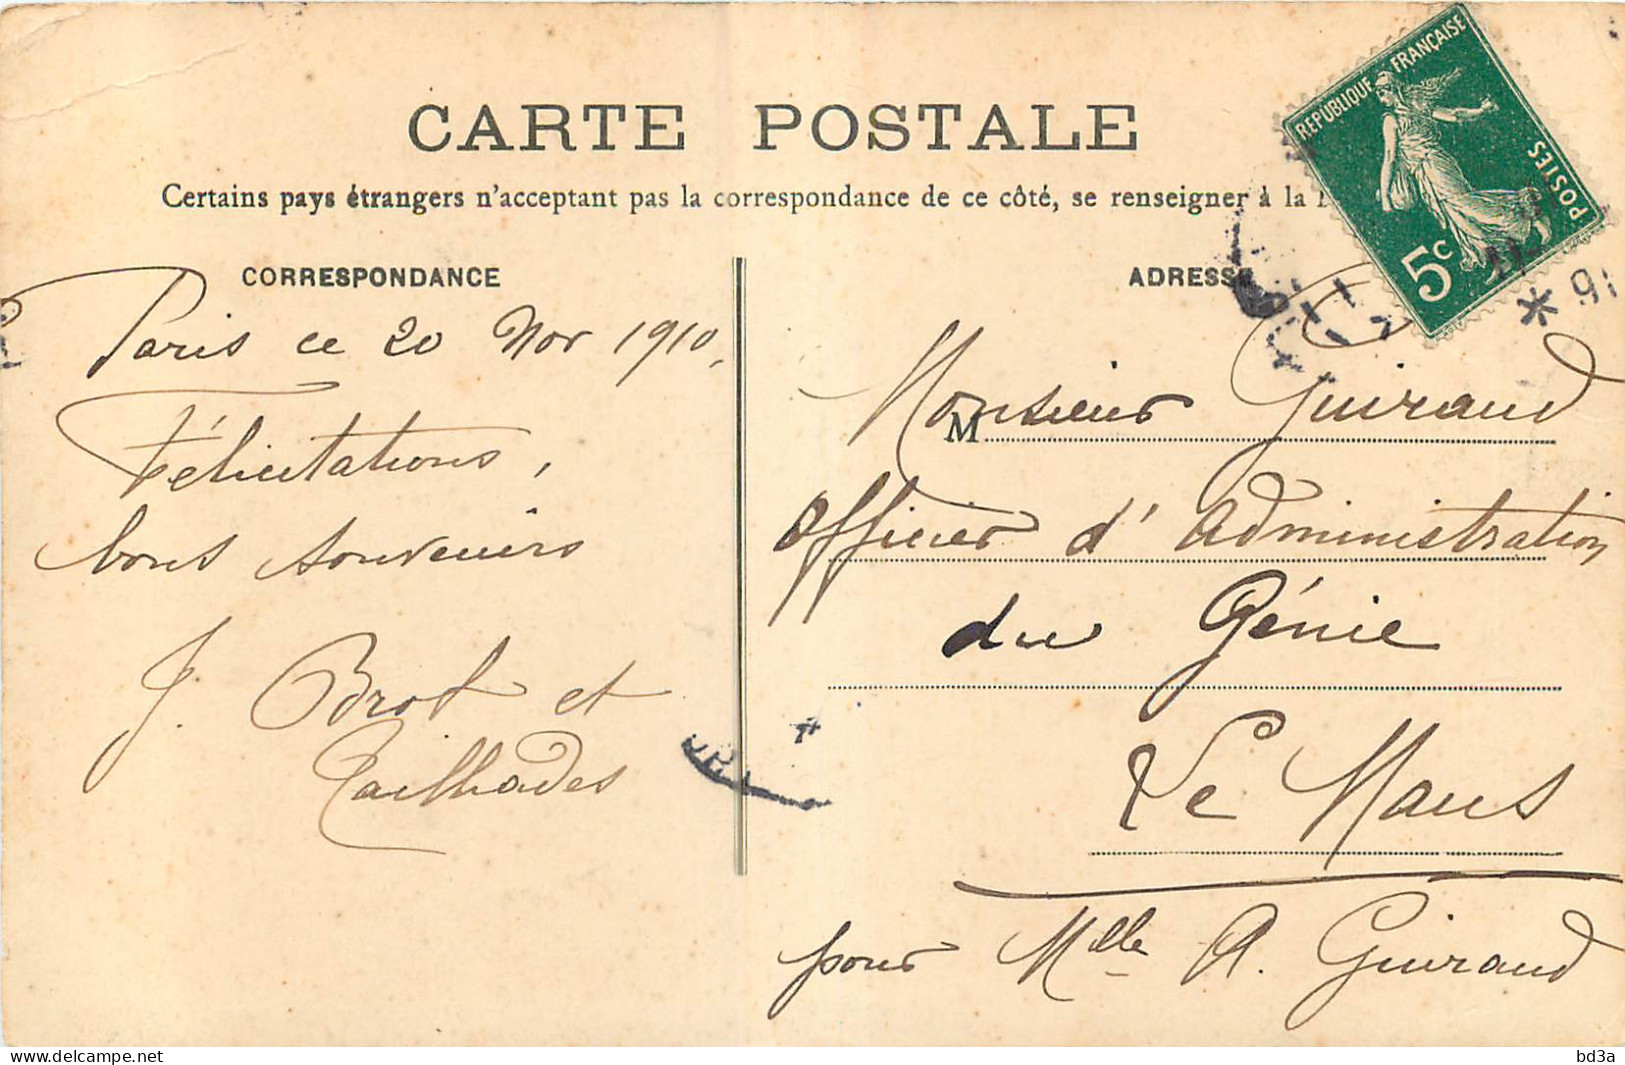 CARTE POSTALE
Certains pays étrangers n'acceptant pas la correspondance de ce côté, se renseigner à la
CORRESPONDANCE
Paris ce 20 Nov 1910,
Félicitations,
bons souvenirs
J. Brot et
Tailhades
ADRESSE
REPUBLIQUE FRANÇAISE
POSTES
5c
M
Monsieur Guiraud
Officier d'Administration
du Génie
Le Mans
pour Mlle A. Guiraud
www.delcampe.net
bd3a